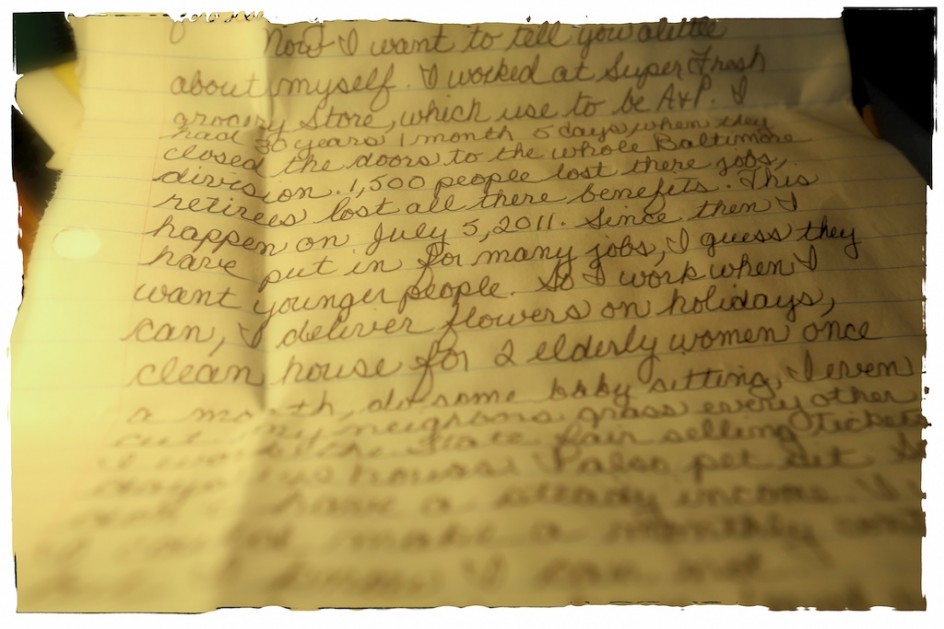 Now I want to tell you a little
about myself. I worked at Super Fresh
grocery Store, which use to be A&P. I
had 30 years 1 month 5 days when they
closed the doors to the whole Baltimore
division. 1,500 people lost there jobs,
retirees lost all there benefits. This
happen on July 5, 2011. Since then I
have put in for many jobs, I guess they
want younger people. So I work when I
can, I deliver flowers on holidays,
clean house for 2 elderly women once
a month, do some baby sitting, I even
cut my neighbors grass every other
I the State fair selling tickets
days hours. I also pet sit. So
have a steady income. I
make a monthly
I can not